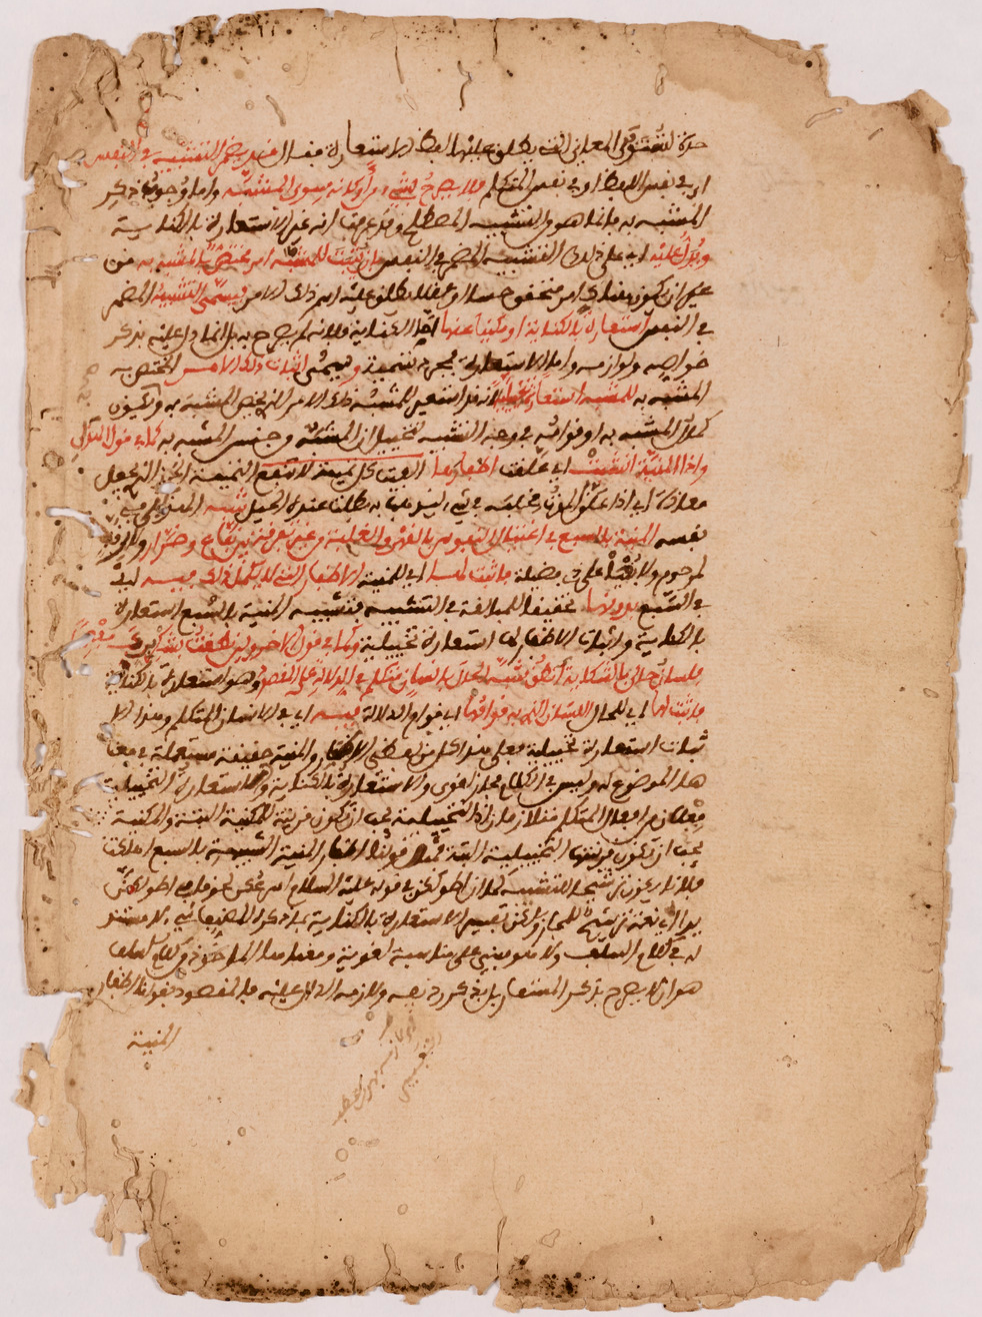 حدة لتستوفي المعاني التي يطلق عليها لفظ الاستعارة فقال قد يضمر التشبيه في النفس
اي في نفس اللفظ او في نفس المتكلم فلا يصرح بشيء من اركانه سوى المشبه واما وجوب ذكر
المشبه به فانما هو في التشبيه المصطلح وقد عرفت انه غير الاستعارة بالكناية
ويدل عليه اي على ذلك التشبيه المضمر في النفس بان يثبت للمشبه امر مختص بالمشبه به من
غير ان يكون هناك امر متحقق حسا او عقلا يطلق عليه اسم ذلك الامر فيسمى التشبيه المضمر
في النفس استعارة بالكناية او مكنيا عنها اما الكناية فلانه لم يصرح به بل انما دل عليه بذكر
خواصه ولوازمه واما الاستعارة فمجرد تسمية ويسمى اثبات ذلك الامر المختص به
المشبه به للمشبه استعارة تخييلية لانه قد استعير للمشبه ذلك الامر الذي يخص المشبه به وبه يكون
كمال المشبه به او قوامه في وجه التشبيه لتخييل ان المشبه من جنس المشبه به كما في قول الهذلي
واذا المنية انشبت اي علقت اظفارها الفيت كل تميمة لا تنفع التميمة الخرزة التي تجعل
معاذة اي اذا علق الموت مخلبه في شيء ليذهب به بطلت عنده الحيل شبه الهذلي في
نفسه المنية بالسبع في اغتيال النفوس بالقهر والغلبة من غير تفرقة بين نفاع وضرار ولا رقة
لمرحوم ولا بقيا على ذي فضيلة فاثبت لها اي للمنية الاظفار التي لا يكمل ذلك فيه
في السبع بدونها تحقيقا للمبالغة في التشبيه فتشبيه المنية بالسبع استعارة
بالكناية واثبات الاظفار لها استعارة تخييلية وكما في قول الاخر ولئن نطقت بشكر برك مفصحا
فلسان حالي بالشكاية انطق شبه الحال بانسان متكلم في الدلالة على المقصود وهو استعارة بالكناية
فاثبت لها اي للحال اللسان الذي به قوامها اي قوام الدلالة فيه اي في الانسان المتكلم وهذا الا
ثبات استعارة تخييلية فعلى هذا كل من لفظي الاظفار والمنية حقيقة مستعملة في معنا
ها الموضوع له وليس في الكلام مجاز لغوي والاستعارة بالكناية والاستعارة التخييلية
فعلان من افعال المتكلم متلازمان اذ التخييلية يجب ان تكون قرينة للمكنية البتة والمكنية
يجب ان تكون قرينتها التخييلية البتة فمثل قولنا اظفار المنية الشبيهة بالسبع اهلكت
فلانا يكون ترشيحا للتشبيه كما ان اطولكن في قوله عليه السلام اسرعكن لحوقا بي اطولكن
يدا اي نعمة ترشيح للمجاز ولكن تفسير الاستعارة بالكناية بما ذكره المصنف شيء لا مستند
له في كلام السلف ولا هو مبني على مناسبة لغوية ومعناها الماخوذ من كلام السلف
هو ان لا يصرح بذكر المستعار بل بذكر رديفه ولازمه الدال عليه فالمقصود بقولنا اظفار
المنية